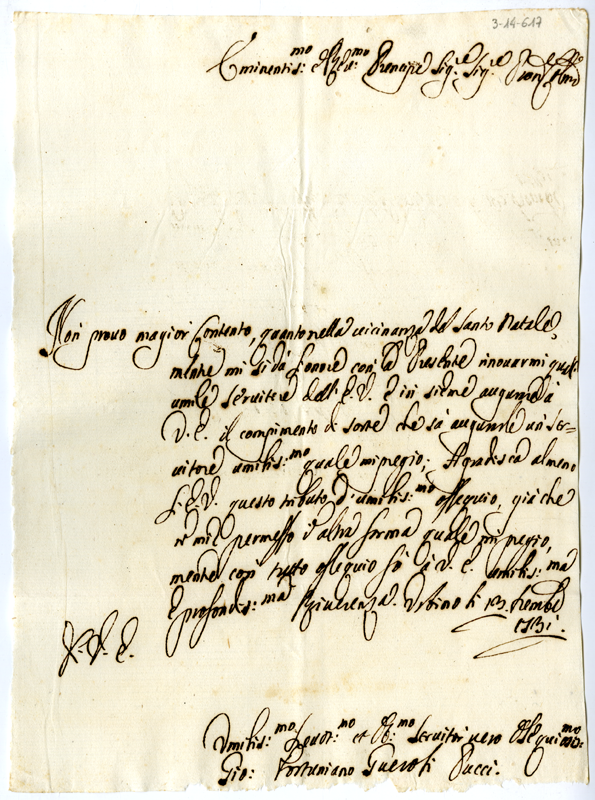 3-14-617
Eminentis:mo e Rev:mo Principe Sig:re Sig:re Pron Col:mo
Non provo magior Contento, quanto nella vicinanza del Santo Natale,
mente mi si dà l'onore con la Presente rinovarmi quell
umile servitore dell' E.V. e in sieme augurare à
V.E. il compimento di sorte che sà augurarle un ser=
vitore umilis:mo quale mi pregio; Agradisca almeno
l'E.V. questo tributo d'umilis:mo ossequio, già che
permesso d'altra forma quale mi pregio,
mente con tutto ossequio fò à V.E. umilis:ma
e profondis:ma Riverenza. Urbino li 13. Xembre
1731.
D. V. E.
Umilis:mo Devot:mo et Ob:mo servitor vero Ossequi:mo
Gio: Fortuniano Gueroli Pucci.